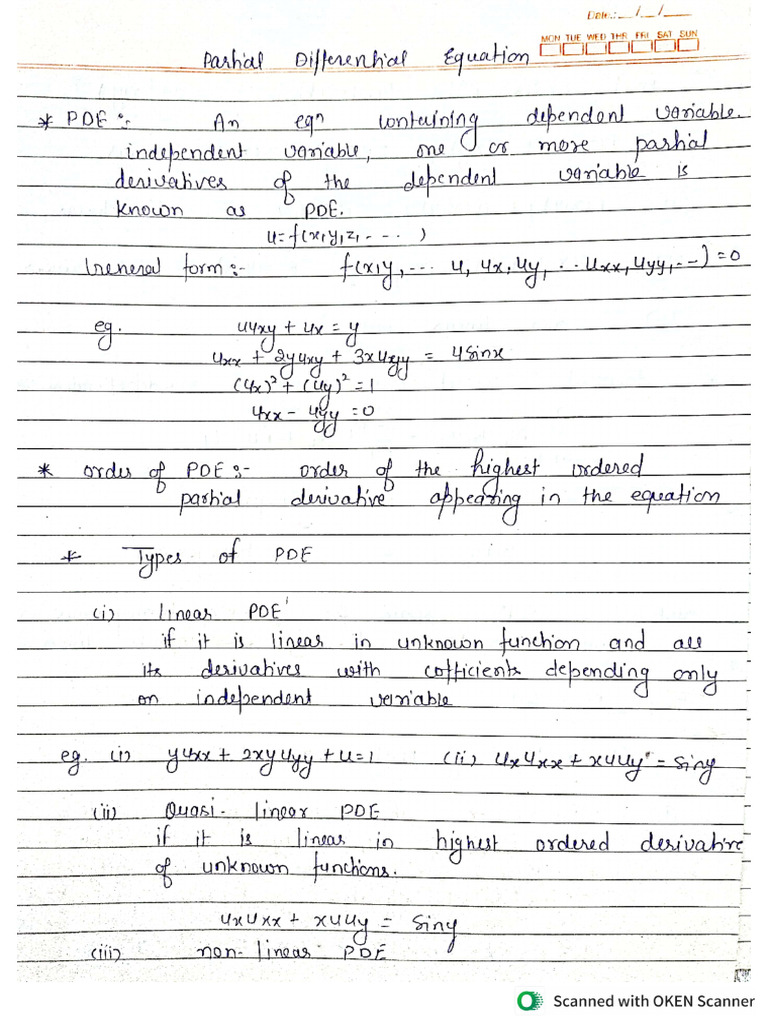 Date.:__/__/__
MON TUE WED THR FRI SAT SUN
Partial Differential Equation
* PDE :- An eqn containing dependent variable.
independent variable, one or more partial
derivatives of the dependent variable is
known as PDE.
u=f(x,y,z,- - - -)
General form:- f(x,y,... u, ux, uy, ...uxx, uyy,.--)=0
eg. uuxy + ux = y
uxx + 2yuxy + 3xuyy = 4sinx
(ux)² + (uy)² = 1
uxx - uyy = 0
* order of PDE :- order of the highest ordered
partial derivative appearing in the equation
* Types of PDE
(i) linear PDE
if it is linear in unknown function and all
its derivatives with cofficients depending only
on independent variable
eg. (i) yuxx + 2xyuyy + u=1 (ii) uxuxx + xuuy = siny
(ii) Quasi- linear PDE
if it is linear in highest ordered derivative
of unknown functions.
uxuxx + xuuy = siny
(iii) non-linear PDE
Scanned with OKEN Scanner